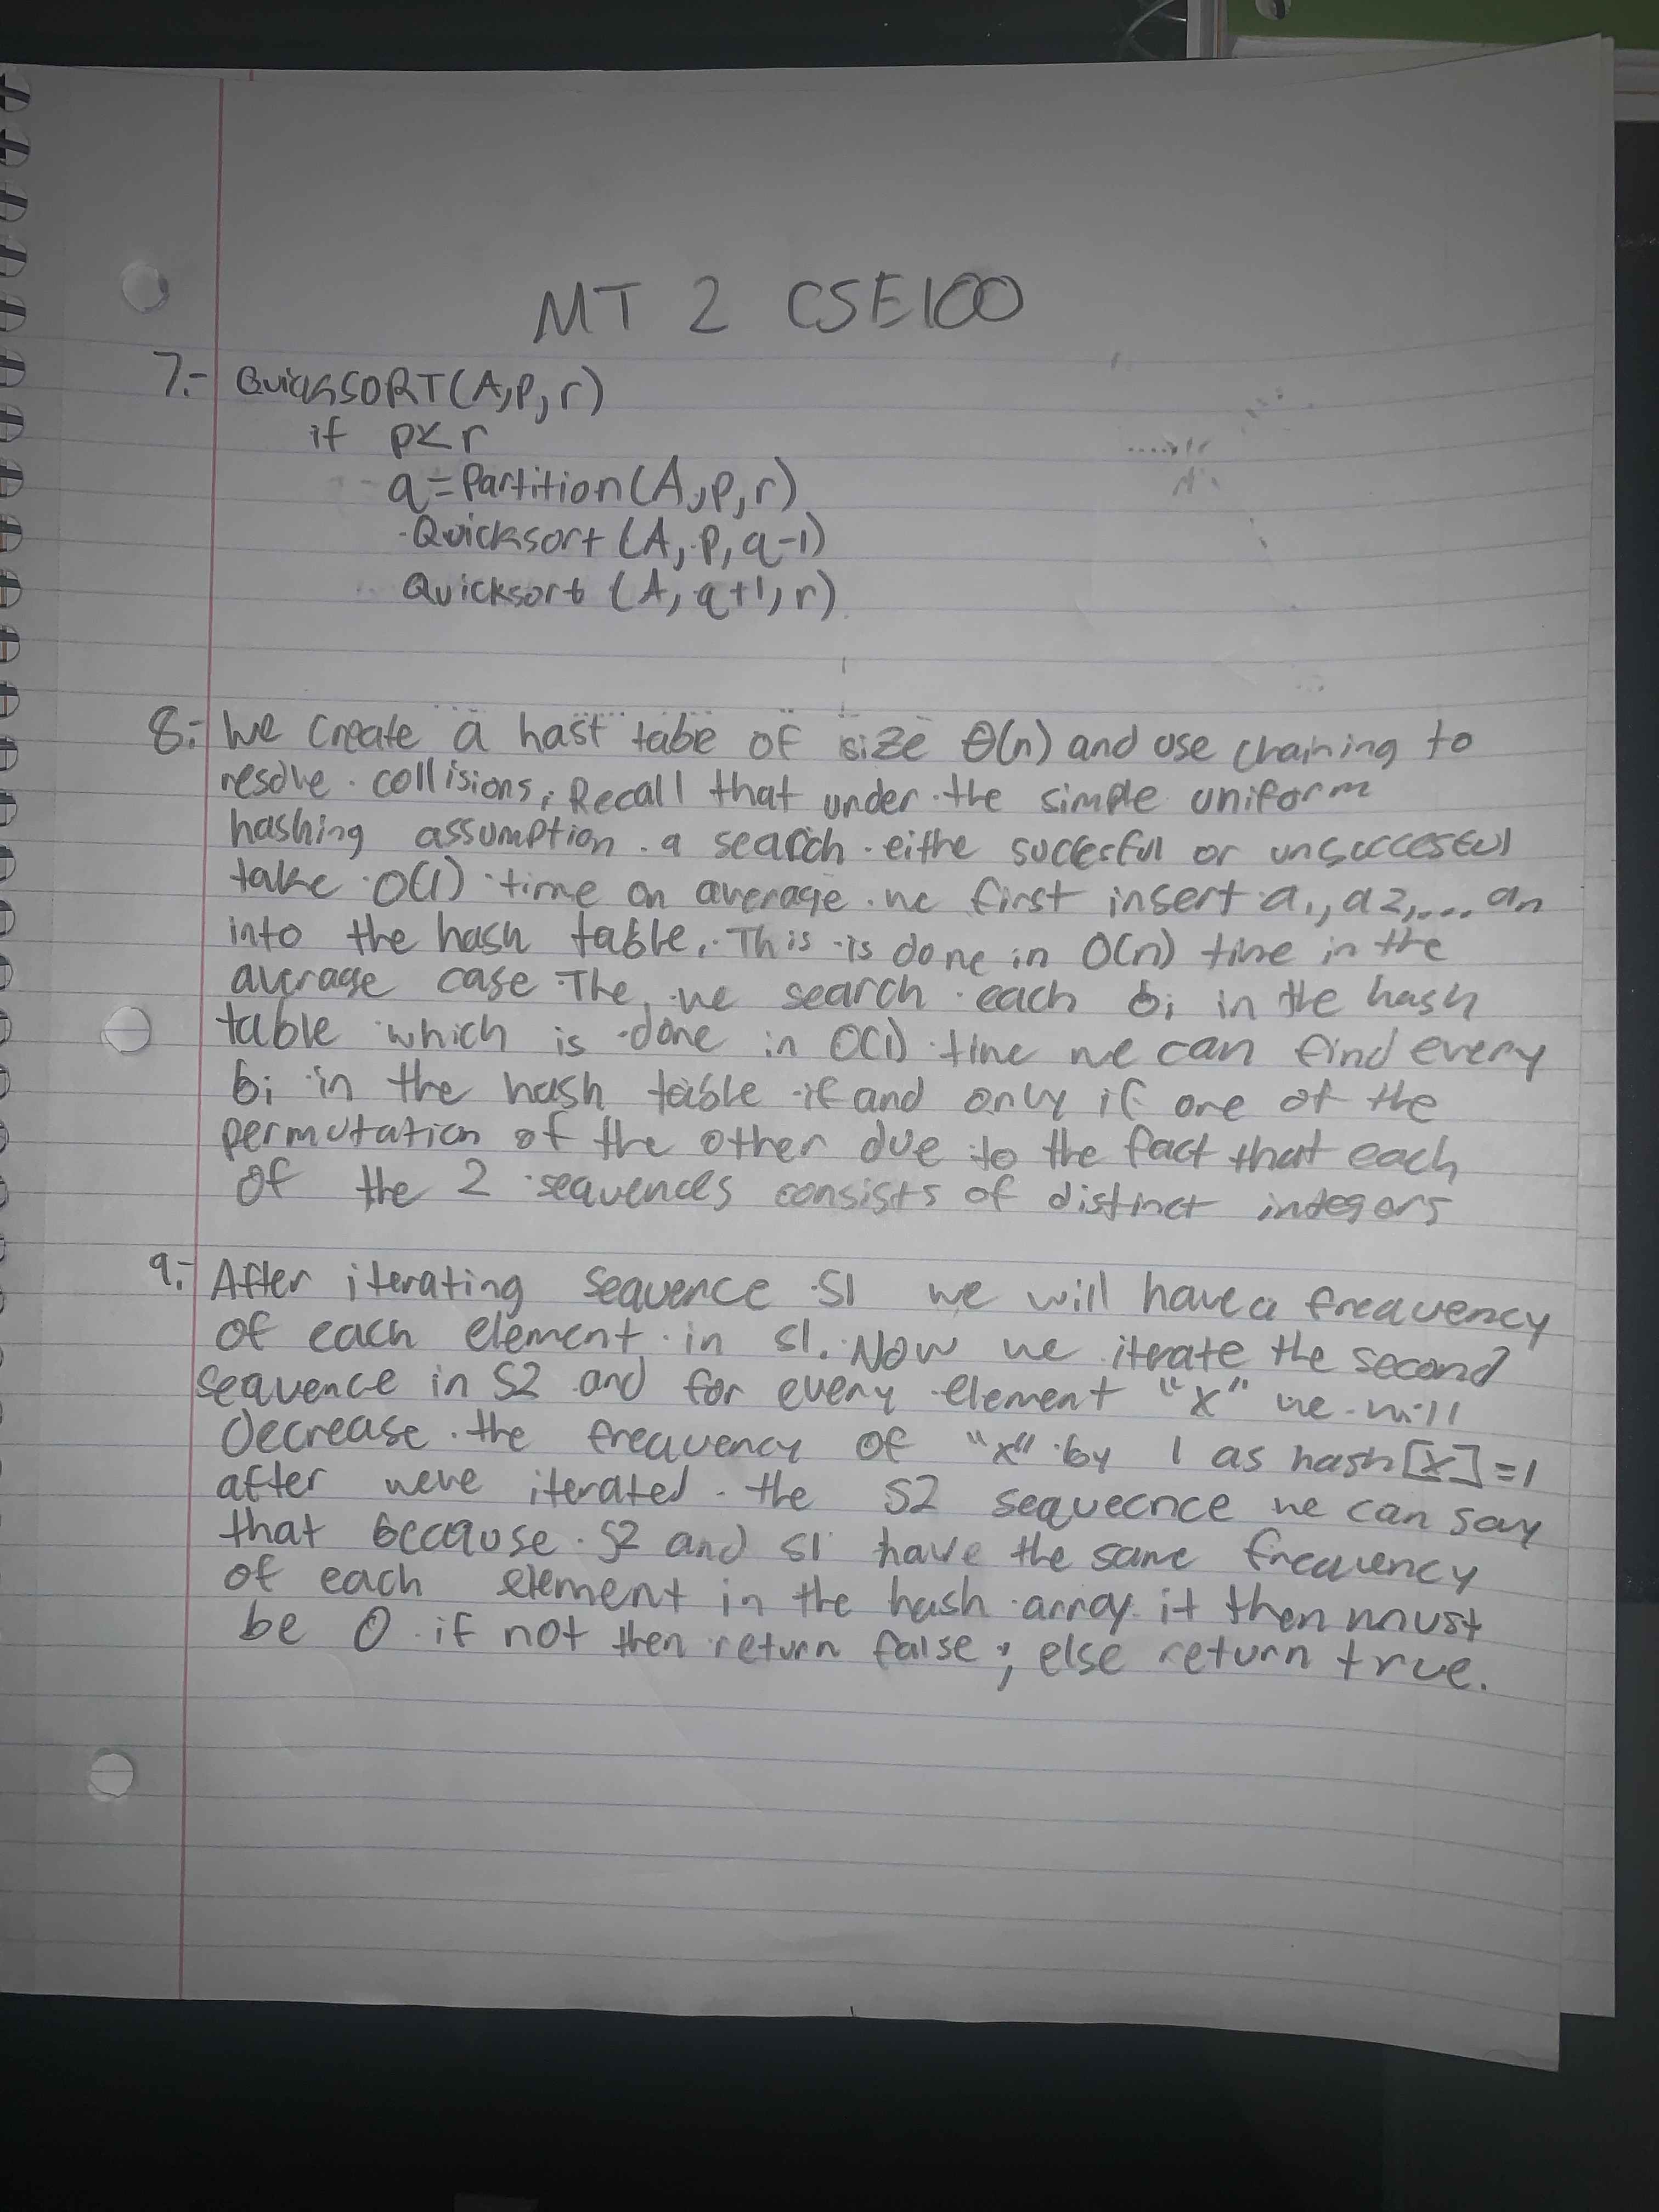 MT 2 CSE100
7.- QuickSORT(A,p,r)
if p<r
q=Partition(A,p,r)
Quicksort (A,p,q-1)
Quicksort (A,q+1,r)
8.- We create a hast tabe of size Θ(n) and use chaining to
resolve collisions, Recall that under the simple uniform
hashing assumption a search eithe succesful or unsuccesful
take O(1) time on average we first insert a1, a2,.... an
into the hash table. This is done in O(n) time in the
average case The, we search each bi in the hash
table which is done in O(1) time we can find every
bi in the hash table if and only if one of the
permutation of the other due to the fact that each
of the 2 sequences consists of distinct integers
9.- After iterating sequence S1 we will have a frequency
of each element in S1. Now we iterate the second
sequence in S2 and for every element "x" we will
decrease the frequency of "x" by 1 as hash[x]=1
after were iterated the S2 sequecnce we can say
that because S2 and S1 have the same frequency
of each element in the hash array it then must
be 0 if not then return false; else return true.